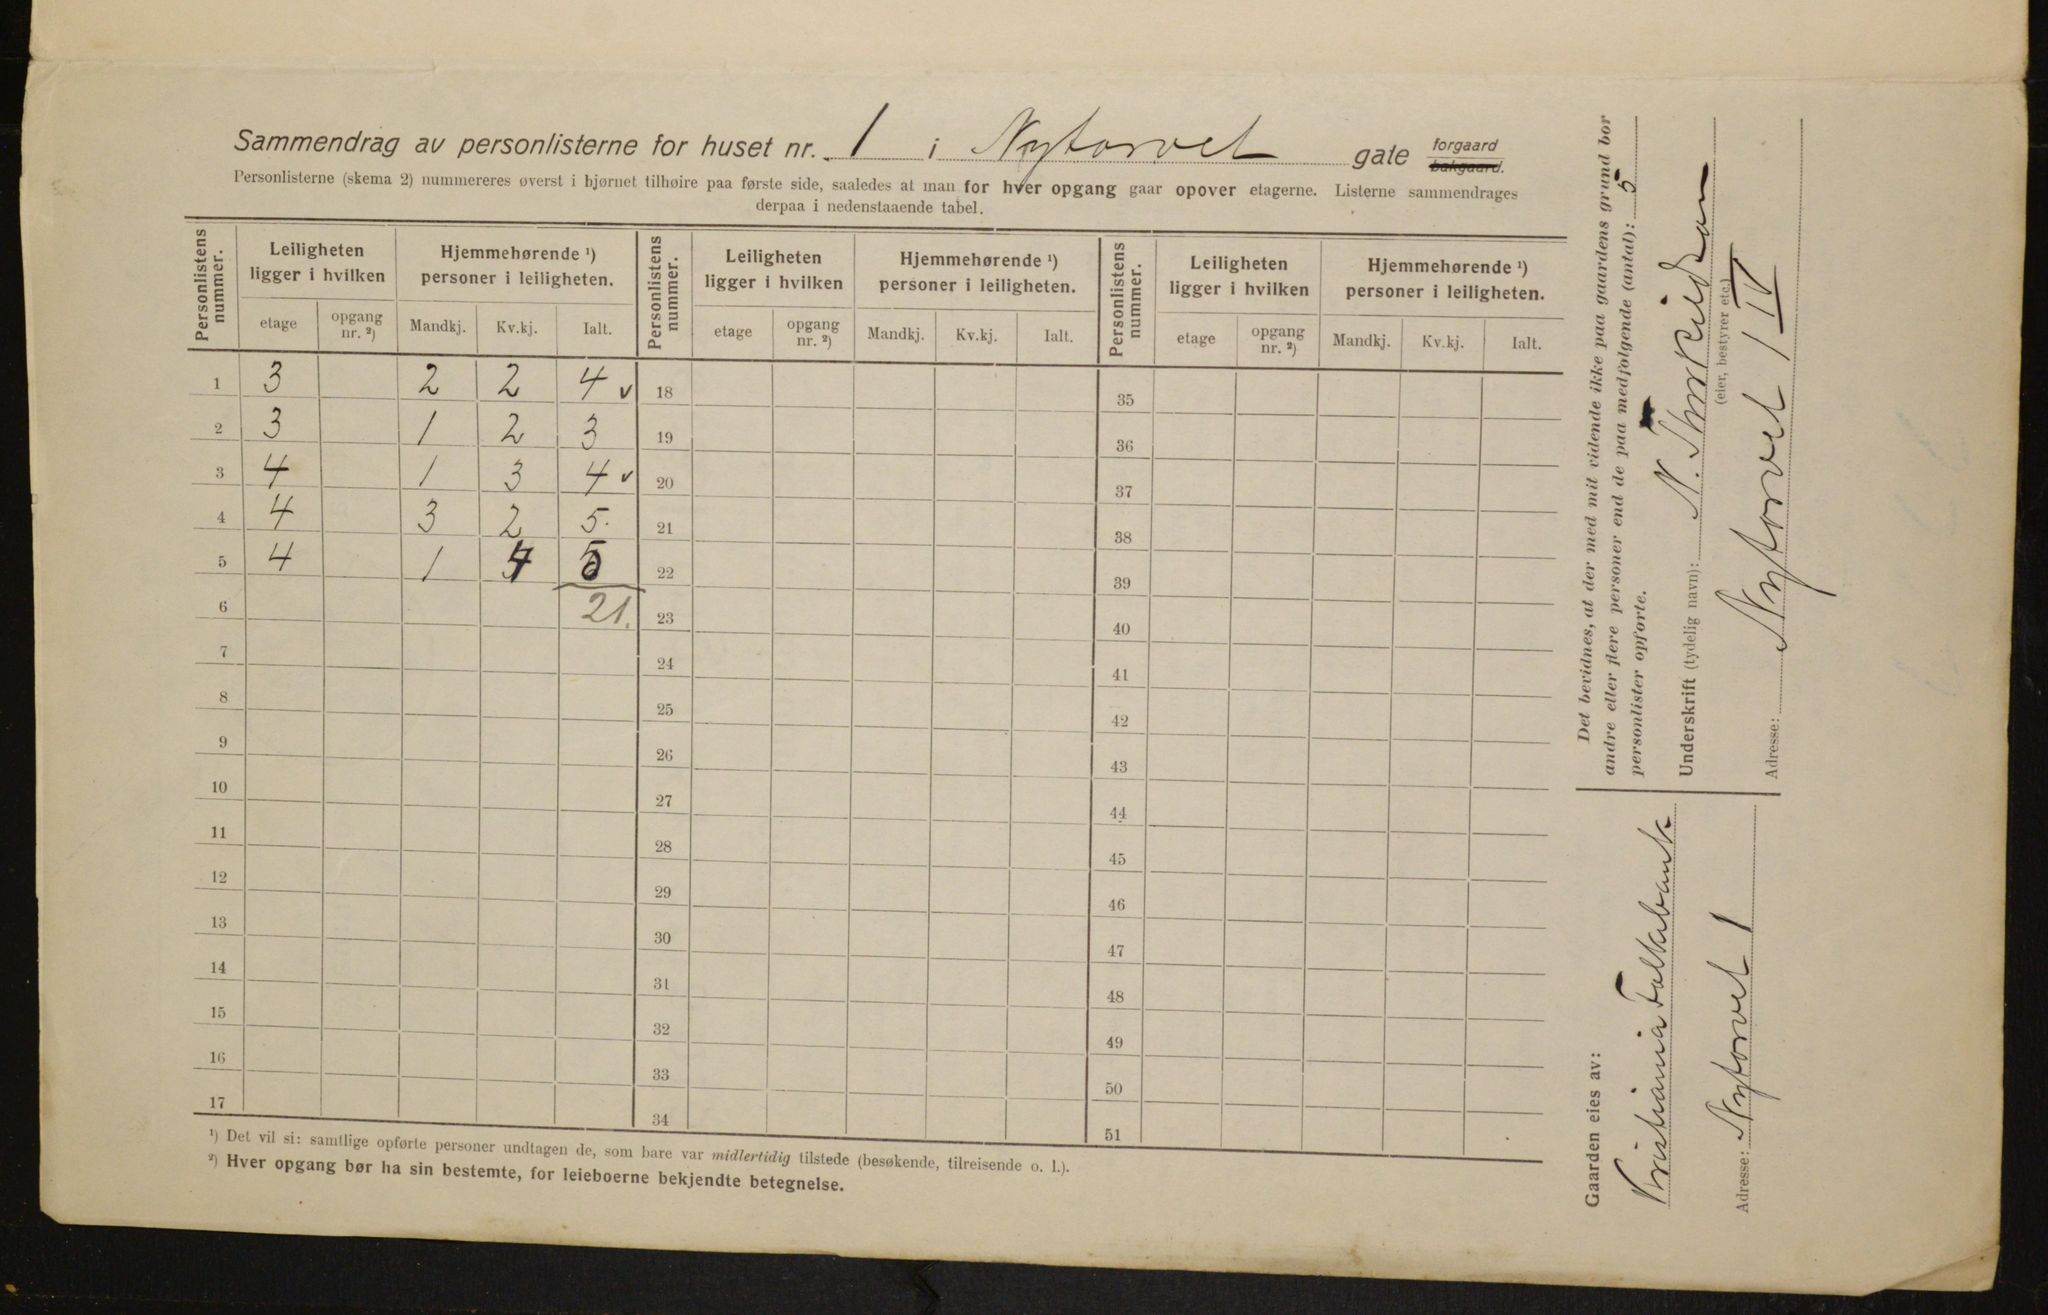 Sammendrag av personlisterne for huset nr. 1 i Nytorvet gate forgaard bakgaard.
Personlisterne (skema 2) nummereres øverst i hjørnet tilhøire paa første side, saaledes at man for hver opgang gaar opover etagerne. Listerne sammendrages
derpaa i nedenstaaende tabel.
Personlistens nummer. Leiligheten ligger i hvilken Hjemmehørende ¹) personer i leiligheten. Personlistens nummer. Leiligheten ligger i hvilken Hjemmehørende ¹) personer i leiligheten. Personlistens nummer. Leiligheten ligger i hvilken Hjemmehørende ¹) personer i leiligheten.
etage opgang nr. ²) Mandkj. Kv.kj. Ialt. etage opgang nr. ²) Mandkj. Kv.kj. Ialt. etage opgang nr. ²) Mandkj. Kv.kj. Ialt.
1 3 2 2 4 v 18 35
2 3 1 2 3 19 36
3 4 1 3 4 v 20 37
4 4 3 2 5. 21 38
5 4 1 4 5 22 39
6 21. 23 40
7 24 41
8 25 42
9 26 43
10 27 44
11 28 45
12 29 46
13 30 47
14 31 48
15 32 49
16 33 50
17 34 51
¹) Det vil si: samtlige opførte personer undtagen de, som bare var midlertidig tilstede (besøkende, tilreisende o. l.).
²) Hver opgang bør ha sin bestemte, for leieboerne bekjendte betegnelse.
Det bevidnes, at der med mit vidende ikke paa gaardens grund bor
andre eller flere personer end de paa medfølgende (antal): 5
personlister opførte.
Underskrift (tydelig navn): N. Thorkildsen
(eier, bestyrer etc.)
Adresse: Nytorvet 1 IV
Gaarden eies av:
Kristiania Folkebank
Adresse: Nytorvet 1